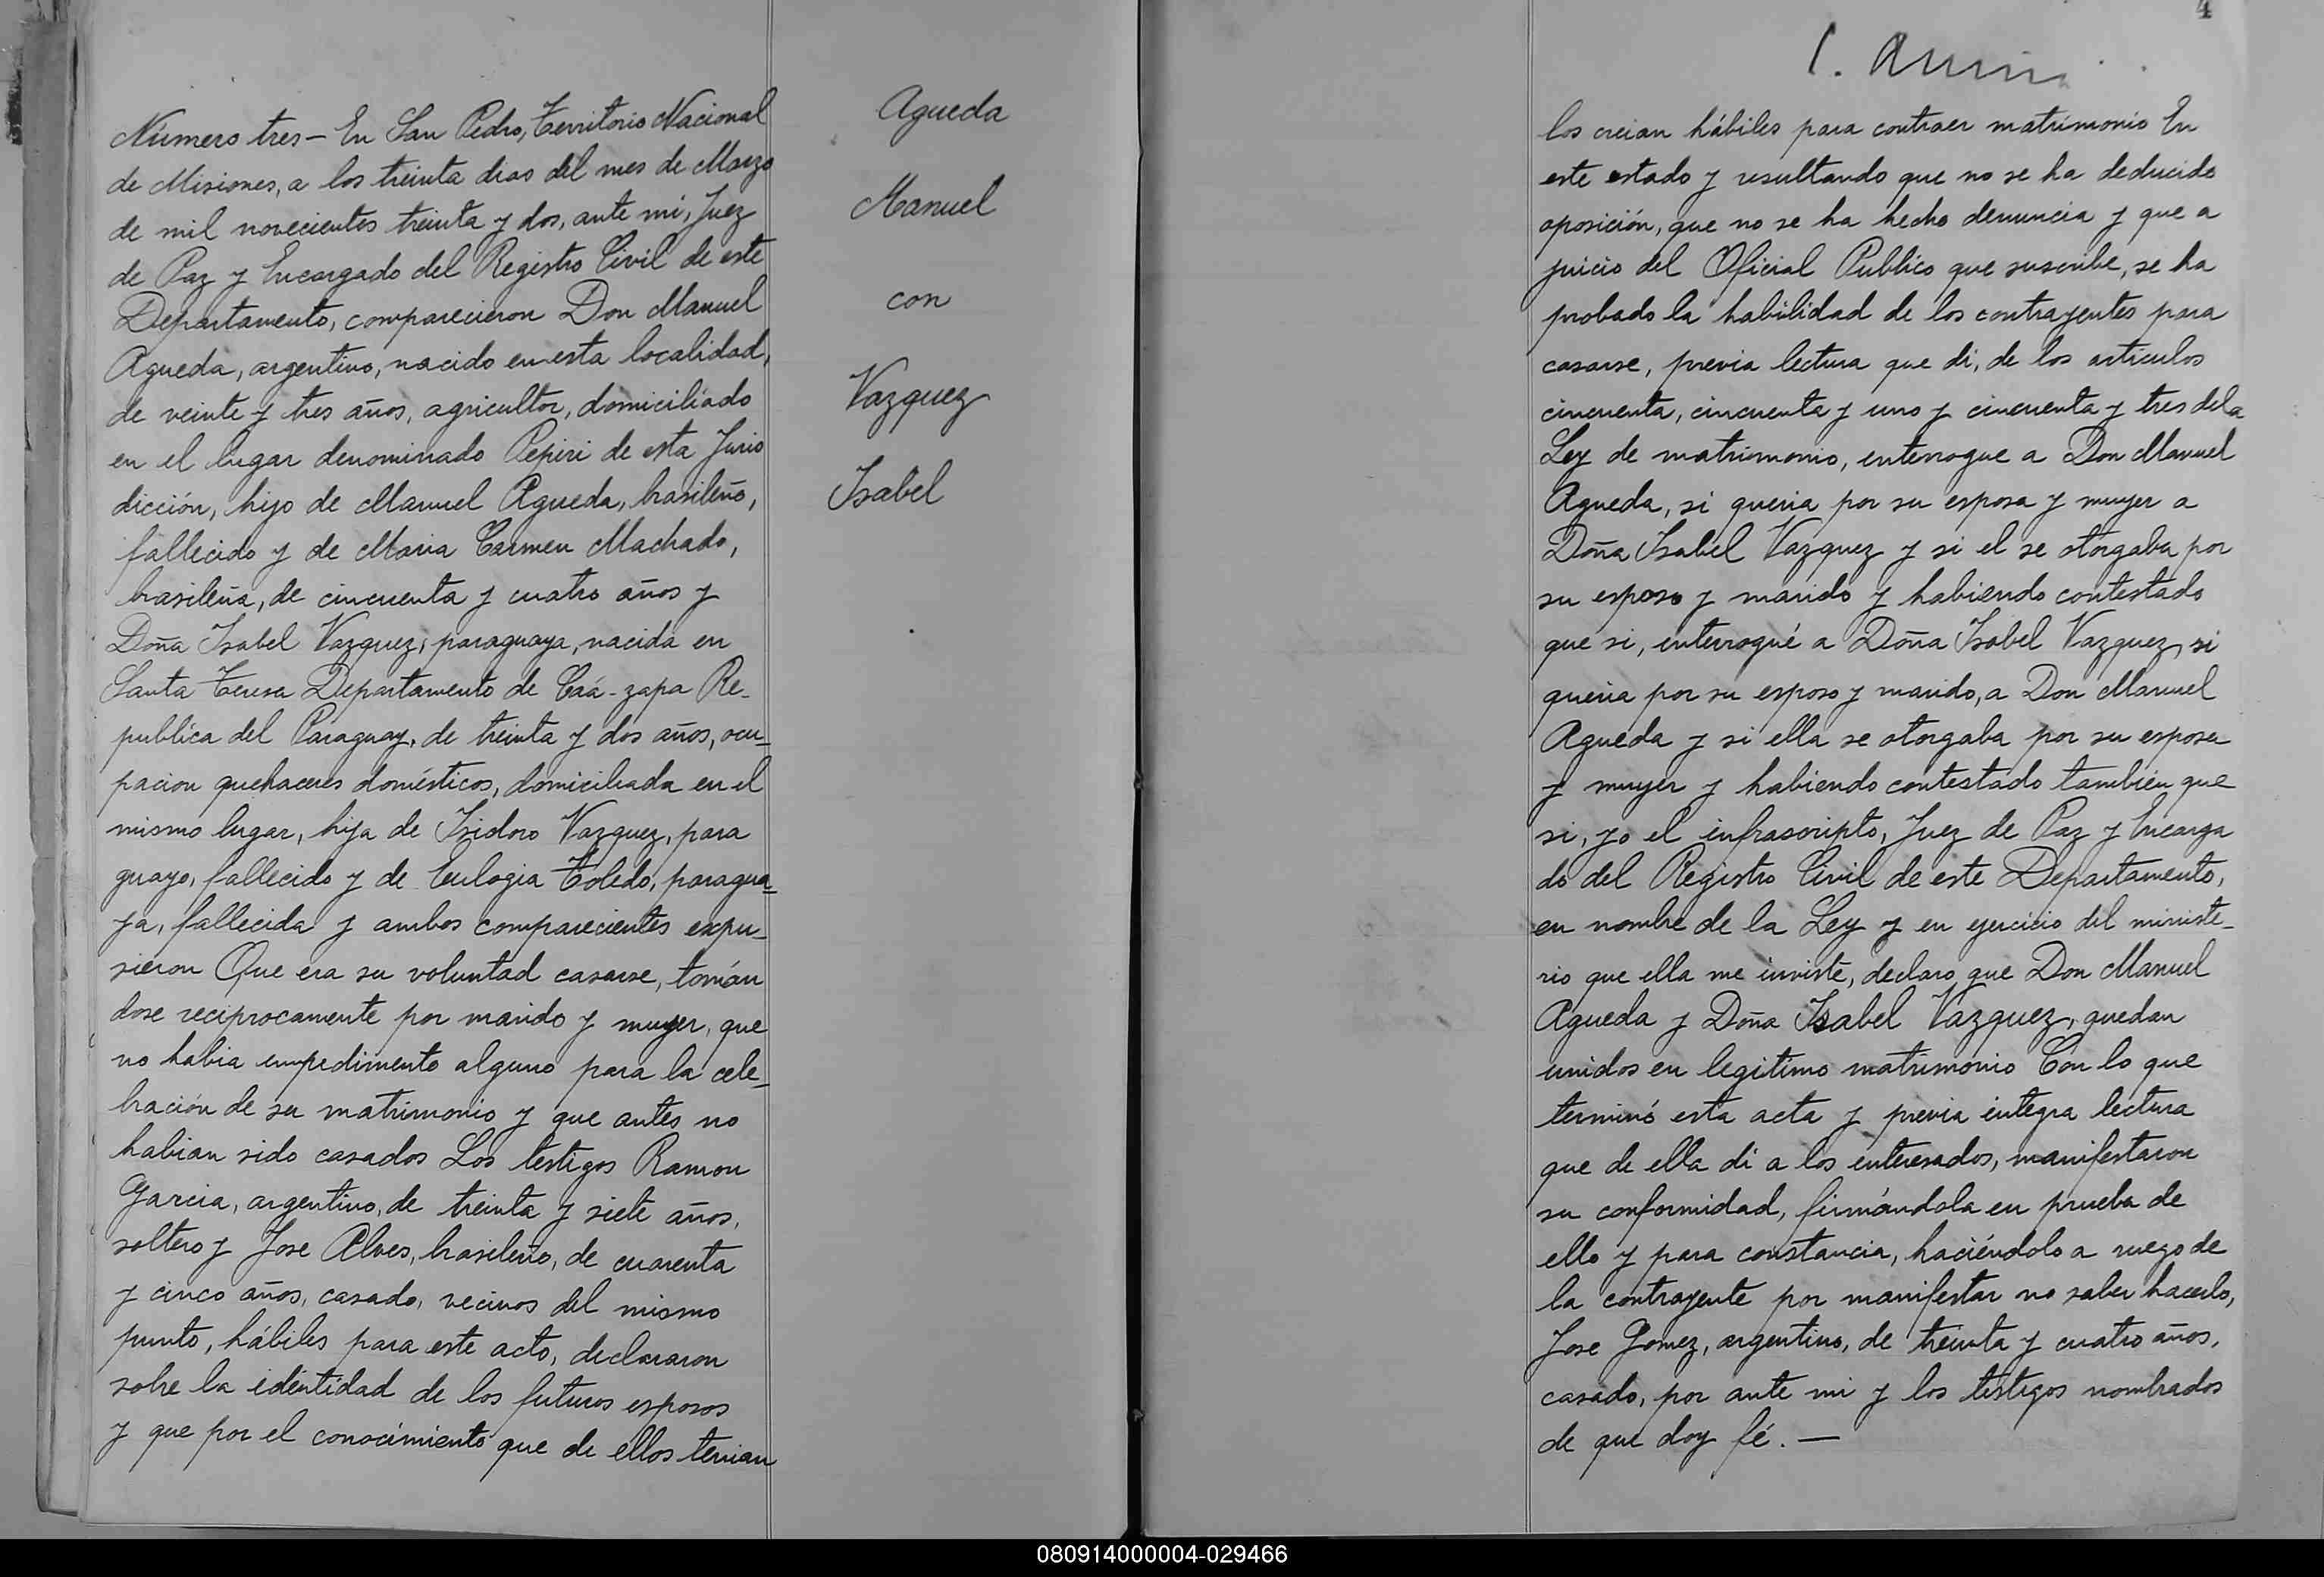 Número tres — En San Pedro, Territorio Nacional
de Misiones, a los treinta dias del mes de Marzo
de mil novecientos treinta y dos, ante mi, Juez
de Paz y Encargado del Registro Civil de este
Departamento, comparecieron Don Manuel
Agueda, argentino, nacido en esta localidad,
de veinte y tres años, agricultor, domiciliado
en el lugar denominado Pepiri de esta Juris
dicción, hijo de Manuel Agueda, brasileño,
fallecido y de Maria Carmen Machado,
brasileña, de cincuenta y cuatro años y
Doña Isabel Vazquez, paraguaya, nacida en
Santa Teresa Departamento de Caá-zapa Re-
publica del Paraguay, de treinta y dos años, ocu-
pacion quehaceres domésticos, domiciliada en el
mismo lugar, hija de Isidoro Vazquez, para
guayo, fallecido y de Eulogia Toledo, paragua-
ya, fallecida y ambos comparecientes expu-
sieron Que era su voluntad casarse, tomán
dose reciprocamente por marido y muyer, que
no habia empedimento alguno para la cele-
bración de su matrimonio y que antes no
habian sido casados Los testigos Ramon
Garcia, argentino, de treinta y siete años,
soltero y Jose Alves, brasileño, de cuarenta
y cinco años, casado, vecinos del mismo
punto, hábiles para este acto, declararon
sobre la identidad de los futuros esposos
y que por el conocimiento que de ellos tenian
Agueda
Manuel
con
Vazquez
Isabel
4
los creian hábiles para contraer matrimonio En
este estado y resultando que no se ha deducido
oposición, que no se ha hecho denuncia y que a
juicio del Oficial Publico que suscribe, se ha
probado la habilidad de los contrayentes para
casarse, previa lectura que di, de los articulos
cincuenta, cincuenta y uno y cincuenta y tres dela
Ley de matrimonio, interrogue a Don Manuel
Agueda, si queria por su esposa y muyer a
Doña Isabel Vazquez y si el se otorgaba por
su esposo y marido y habiendo contestado
que si, interrogué a Doña Isabel Vazquez, si
queria por su esposo y marido, a Don Manuel
Agueda y si ella se otorgaba por su esposa
y muyer y habiendo contestado también que
si, yo el infrascripto, Juez de Paz y Encarga
do del Registro Civil de este Departamento,
en nombre de la Ley y en ejercicio del ministe-
rio que ella me inviste, declaro que Don Manuel
Agueda y Doña Isabel Vazquez, quedan
unidos en legitimo matrimonio Con lo que
terminó esta acta y previa integra lectura
que de ella di a los interesados, manifestaron
su conformidad, firmándola en prueba de
ello y para constancia, haciéndolo a ruego de
la contrayente por manifestar no saber hacerlo,
Jose Gomez, argentino, de treinta y cuatro años,
casado, por ante mi y los testigos nombrados
de que doy fé. —
080914000004-029466